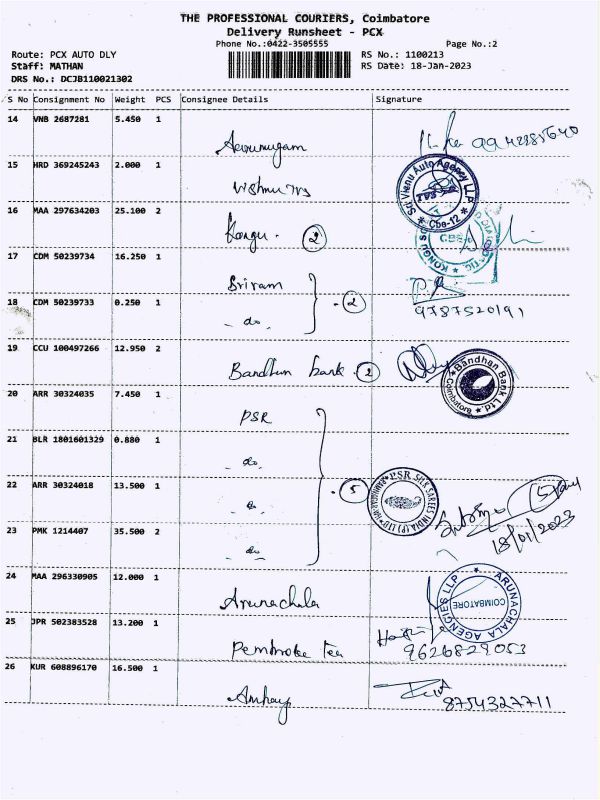 THE PROFESSIONAL COURIERS, Coimbatore
Delivery Runsheet - PCX
Phone No.:0422-3505555 Page No.:2
Route: PCX AUTO DLY RS No.: 1100213
Staff: MATHAN RS Date: 18-Jan-2023
DRS No.: DCJB110021302
S No Consignment No Weight PCS Consignee Details Signature
14 VNB 2687281 5.450 1
15 HRD 369245243 2.000 1 Vishnu
Sri Vishnu Auto Agency LLP * Cbe-12 *
16 MAA 297634203 25.100 2 Kongu. 2
17 CDM 50239734 16.250 1 Sriram
18 CDM 50239733 0.250 1 - do - 2 9787520191
19 CCU 100497266 12.950 2 Bandhan bank. 2
Bandhan Bank Ltd Coimbatore
20 ARR 30324035 7.450 1 PSR
21 BLR 1801601329 0.880 1 - do -
22 ARR 30324018 13.500 1 - do - 5
PSR SILK SAREES INDIA (P) LTD
18/01/2023
23 PMK 1214407 35.500 2 - do -
24 MAA 296330905 12.000 1 Arunachala
ARUNACHALA AGENCIES LLP * COIMBATORE
25 JPR 502383528 13.200 1 Pembroke tea 9626829053
26 KUR 608896170 16.500 1 8754327711